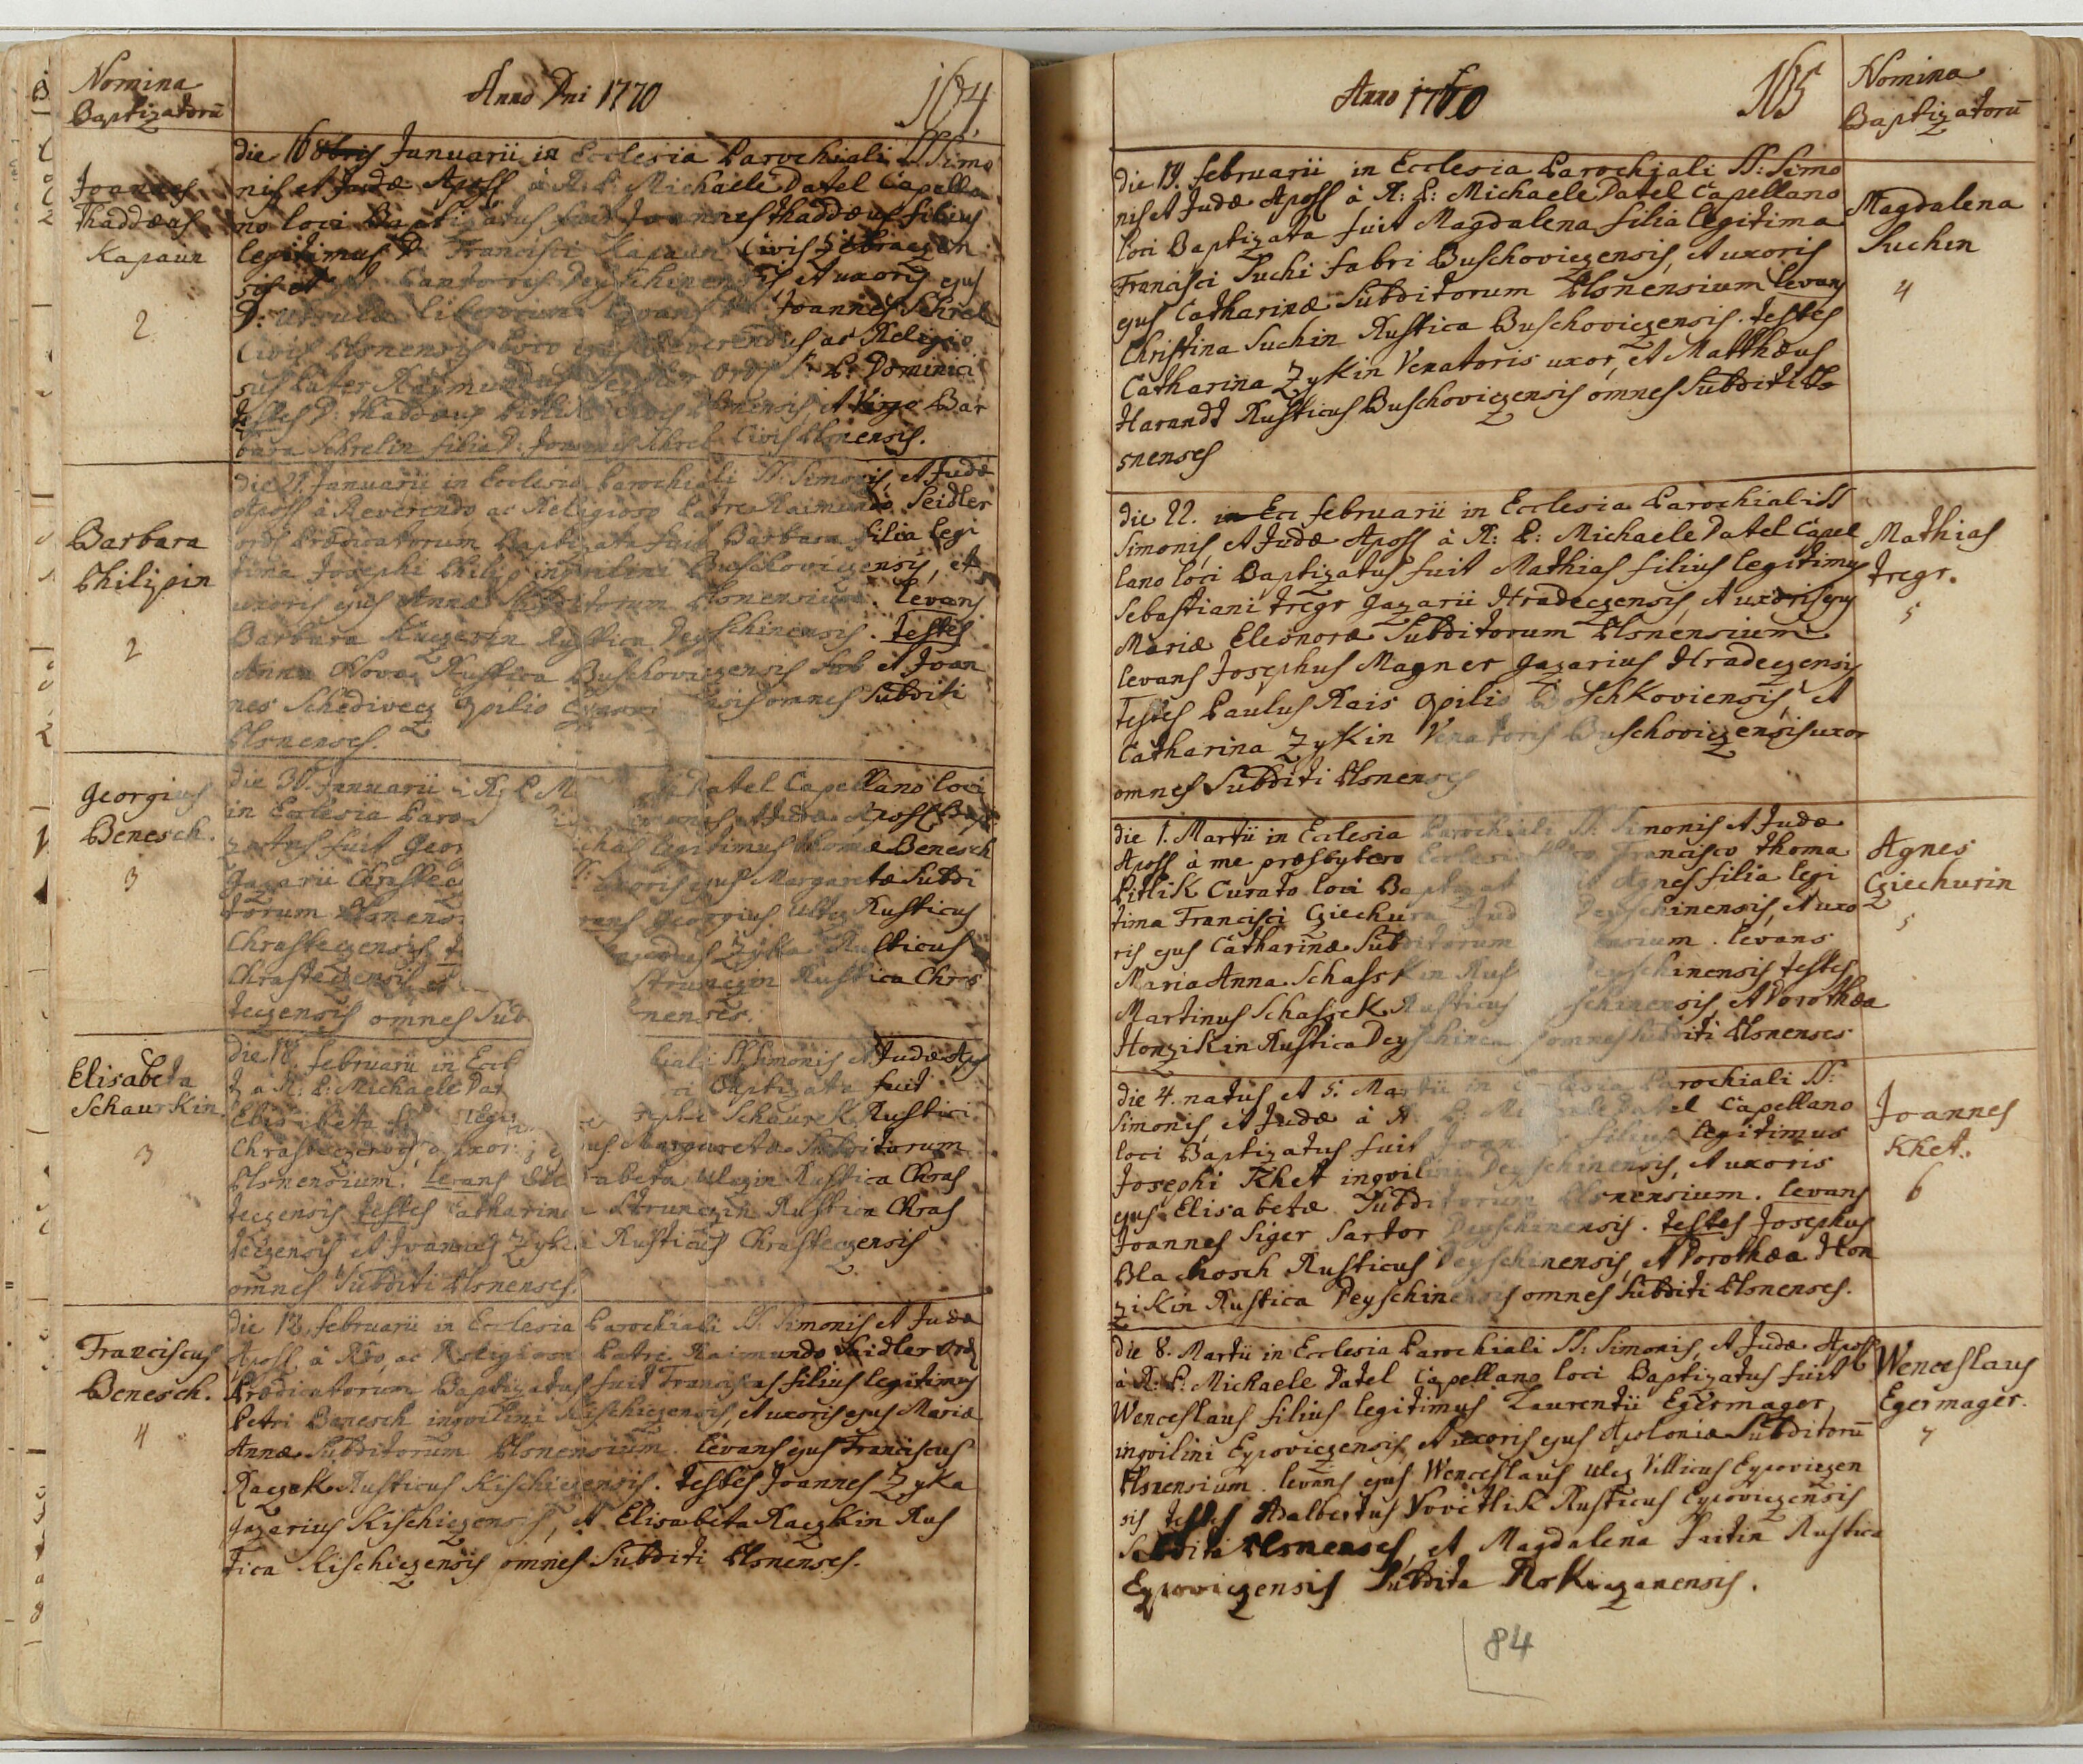 Nomina
Baptizatorū
Anno Dni 1770
164
Joannes
Thaddæus
Kapaun
2
die 16 8bris Januarii in Ecclesia Parochiali SS: Simo
nis et Judæ Aposs à R: P: Michaele Datel Capella
no loci Baptizatus fuit Joannes Thaddæus filius
legitimus D: Francisci Kapaun Civis
sis et Cantoris Deyschinensis, et uxoris ejus
D: Ursulæ Levans D: Joannes Schrel
Civis Plsnensis loco ejus Reverendus ac Religio
sus Pater Raymundus Seidler Ord: S: P: Dominici
testes D: Thaddæus Pitlik Civis Plsnensis, et Virgo Bar
bara Schrelin filia D: Joannes Schrel Civis Plsnensis.
Barbara
Philipin
2
die 21. Januarii in Ecclesia Parochiali SS: Simonis, et Judæ
Aposs à Reverendo ac Religioso Patre Raimundo Seidler
ord: Prædicatorum Baptizata fuit Barbara filia legi
tima Josephi Philip inqvilini Buschoviczensis, et
uxoris ejus Annæ Subditorum Plsnensium. levans
Barbara Kuczerin Rustica Deyschinensis. testes
Anna Nova Rustica Buschoviczensis et Joan
nes Schedivecz opilio omnes Subditi
Plsnenses.
Georgius
Benesch.
3
die 31. Januarii à R: P: M Datel Capellano loci
in Ecclesia Paro Simonis et Judæ Aposs Bapti
zatus fuit Geor filius legitimus Thomæ Benesch
Jazarii Chrastecz uxoris ejus Margaretæ Subdi
torum Plsnens vans Georgius Ulcz Rusticus
Chrasteczensis, t Zyka Rusticus
Chrasteczensis, et Strunczin Rustica Chras
teczensis omnes Sub nenses.
Elisabeta
Schaurkin.
3
die 10. februarii in Eccl hiali SS: Simonis et Judæ Apos
t à R: P: Michaele Dat ci Baptizata fuit
Elisabeta fi legi sephi Schaurek Rustici
Chrasteczensis, et uxoris ejus Margaretæ Subditorum
Plsnensium. Levans Elisabeta Ulczin Rustica Chras
teczensis testes Catharina Strunczin Rustica Chras
teczensis et Joannes Zyka Rusticus Chrasteczensis
omnes Subditi Plsnenses.
Franciscus
Benesch.
4
die 12. februarii in Ecclesia Parochiali SS: Simonis et Judæ
Aposs à Rdo, ac Religioso Patre Raimundo Seidler Ord:
Prædicatorum Baptizatus fuit Franciscus filius legitimus
Petri Benesch inqvilini Kischiczensis, et uxoris ejus Mariæ
Annæ Subditorum Plsnensium. levans ejus Franciscus
Raczek Rusticus Kischiczensis. testes Joannes Zyka
Jazarius Kischiczensis, et Elisabeta Raczkin Rus
tica Kischiczensis omnes Subditi Plsnenses.
Anno 1770
165
Nomina
Baptizatorū
die 19. februarii in Ecclesia Parochiali SS: Simo
nis et Judæ Aposs à R: P: Michaele Datel Capellano
loci Baptizata fuit Magdalena filia legitima
Francisci Suchi fabri Buschoviczensis, et uxoris
ejus Catharinæ Subditorum Plsnensium levans
Christina Suchin Rustica Buschoviczensis. testes
Catharina Zykin Venatoris uxor, et Matthæus
Harandt Rusticus Buschoviczensis omnes Subditi Pl
snenses
Magdalena
Suchin
4
die 22. in Ecc februarii in Ecclesia Parochiali SS
Simonis, et Judæ Aposs à R: P: Michaele Datel Capel
lano loci Baptizatus fuit Mathias filius legitimus
Sebastiani Tregr Jazarii Hradeczensis, et uxoris ejus
Mariæ Eleonoræ Subditorum Plsnensium
levans Josephus Magner Jazarius Hradeczensis
Testes Paulus Rais opilio schkoviensis, et
Catharina Zykin Venatoris Buschoviczensis uxor
omnes Subditi Plsnenses
Mathias
Tregr.
5
die 1. Martii in Ecclesia Parochiali SS: Simonis et Judæ
Aposs à me præsbytero Francisco Thoma
Pitlik Curato loci Baptizata fuit Agnes filia legi
tima Francisci Cziechura Deyschinensis, et uxo
ris ejus Catharinæ Subditorum nsium. levans
Maria Anna Schasskin Rus Deyschinensis testes
Martinus Schassek Rusticus schinensis, et Dorothæa
Honzikin Rustica Deyschinen omnes Subditi Plsnenses
Agnes
Cziechurin
5
die 4. natus, et 5. Martii in Ecclesia Parochiali SS:
Simonis, et Judæ à R: P: Michaele Datel Capellano
loci Baptizatus fuit Joannes filius legitimus
Josephi Khet inqvilini Deyschinensis, et uxoris
ejus Elisabetæ Subditorum Plsnensium. levans
Joannes Siger Sartor Deyschinensis. testes Josephus
Blachosch Rusticus Deyschinensis, et Dorothæa Hon
zikin Rustica Deyschinensis omnes Subditi Plsnenses.
Joannes
Khet.
6
die 8. Martii in Ecclesia Parochiali SS: Simonis, et Judæ Aposs
à R: P: Michaele Datel Capellano loci Baptizatus fuit
Wenceslaus filius legitimus Laurentii Egermager
inqvilini Eypoviczensis, et uxoris ejus Apoloniæ Subditorū
Plsnensium. levans ejus Wenceslaus Ulcz Villicus Eypoviczen
sis testes Adalbertus Novetlik Rusticus Eypoviczensis
Subditi Plsnenses, et Magdalena Rustica
Eypoviczensis Subdita Rokiczanensis.
Wenceslaus
Egermager.
7
84